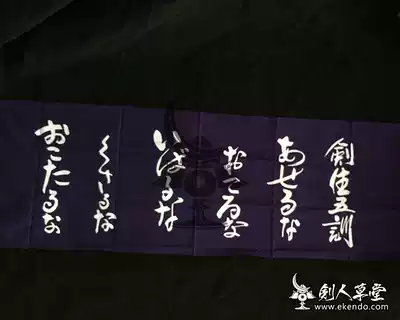 剣五訓
あせるな
おこるな
いばるな
くさるな
おこたるな
剣人草堂
www.ekendo.com